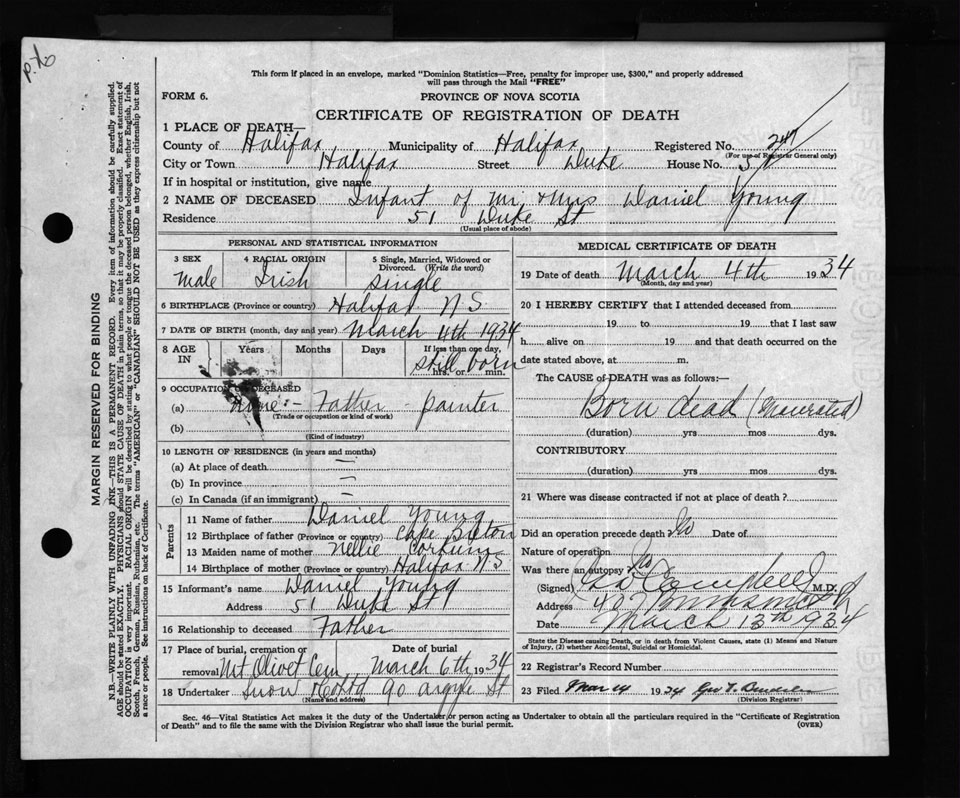 p.x6
This form if placed in an envelope, marked "Dominion Statistics—Free, penalty for improper use, $300," and properly addressed
will pass through the Mail "FREE"
FORM 6. PROVINCE OF NOVA SCOTIA
CERTIFICATE OF REGISTRATION OF DEATH
1 PLACE OF DEATH—
County of Halifax Municipality of Halifax Registered No. 247
(For use of Registrar General only)
City or Town Halifax Street Duke House No. 51
If in hospital or institution, give name
2 NAME OF DECEASED Infant of Mr & Mrs Daniel Young
Residence 51 Duke St
(Usual place of abode)
PERSONAL AND STATISTICAL INFORMATION
3 SEX 4 RACIAL ORIGIN 5 Single, Married, Widowed or
Divorced. (Write the word)
male Irish single
6 BIRTHPLACE (Province or country) Halifax N S
7 DATE OF BIRTH (month, day and year) March 4th 1934
8 AGE IN Years Months Days If less than one day,
still born
hrs. or min.
9 OCCUPATION OF DECEASED
(a) none – Father – painter
(Trade or occupation or kind of work)
(b)
(Kind of industry)
10 LENGTH OF RESIDENCE (in years and months)
(a) At place of death —
(b) In province —
(c) In Canada (if an immigrant) —
Parents
11 Name of father Daniel Young
12 Birthplace of father (Province or country) Cape Breton
13 Maiden name of mother Nellie
14 Birthplace of mother (Province or country) Halifax N S
15 Informant's name Daniel Young
Address 51 Duke St
16 Relationship to deceased Father
17 Place of burial, cremation or Date of burial
removal Mt Olivet Cem March 6th 1934
18 Undertaker Snow 90 Argyle St
(Name and address)
MEDICAL CERTIFICATE OF DEATH
19 Date of death March 4th 1934
(Month, day and year)
20 I HEREBY CERTIFY that I attended deceased from
19 to 19 that I last saw
h alive on 19 and that death occurred on the
date stated above, at m.
The CAUSE of DEATH was as follows:—
Born dead (macerated)
(duration) yrs mos dys.
CONTRIBUTORY
(duration) yrs mos dys.
21 Where was disease contracted if not at place of death?
Did an operation precede death? No Date of
Nature of operation
Was there an autopsy? No
(Signed) Campbell M.D.
Address 407
Date March 13th 1934
State the Disease causing Death, or in death from Violent Causes, state (1) Means and Nature
of Injury, (2) whether Accidental, Suicidal or Homicidal.
22 Registrar's Record Number
23 Filed Mar 14 1934
(Division Registrar)
Sec. 46—Vital Statistics Act makes it the duty of the Undertaker or person acting as Undertaker to obtain all the particulars required in the "Certificate of Registration
of Death" and to file the same with the Division Registrar who shall issue the burial permit. (OVER)
MARGIN RESERVED FOR BINDING
N.B.—WRITE PLAINLY WITH UNFADING INK—THIS IS A PERMANENT RECORD. Every item of information should be carefully supplied.
AGE should be stated EXACTLY. PHYSICIANS should STATE CAUSE OF DEATH in plain terms, so that it may be properly classified. Exact statement of
OCCUPATION is very important. RACIAL ORIGIN will be described by stating to what people or tongue the deceased person belonged, whether English, Irish,
Scotch, French, German, Russian, Ruthenian, etc. The terms "AMERICAN" or "CANADIAN" SHOULD NOT BE USED as they express citizenship but not
a race or people. See instructions on back of Certificate.